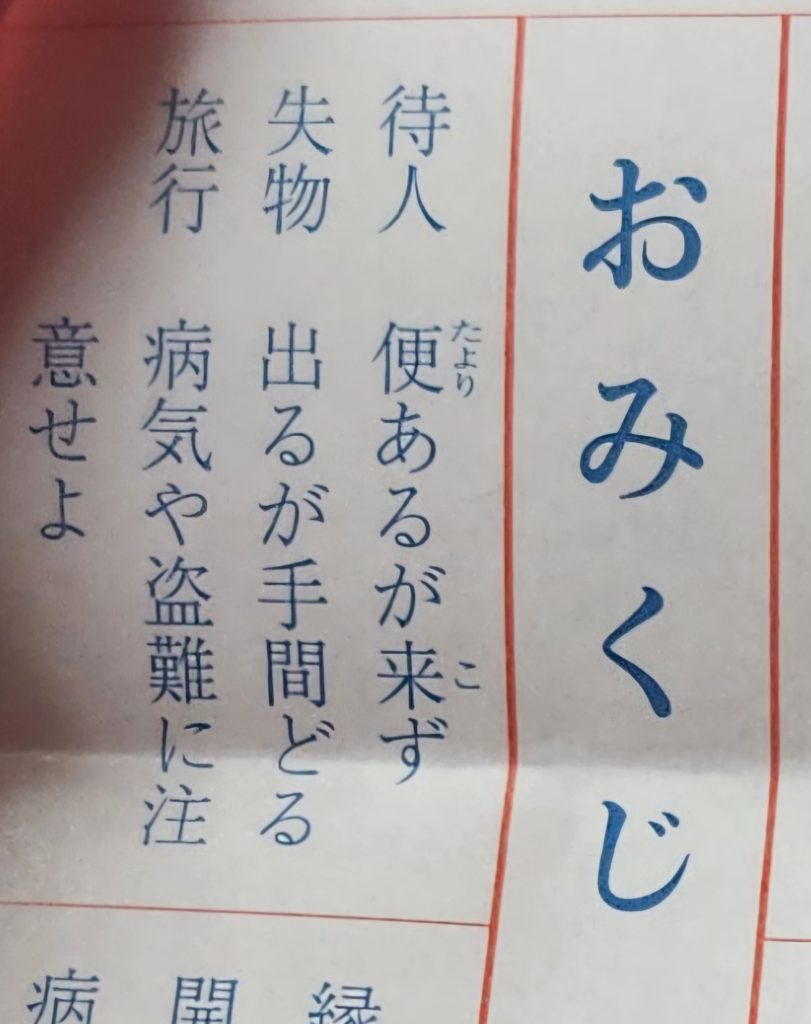 おみくじ
待人 便あるが来ず
たより
こ
失物 出るが手間どる
旅行 病気や盗難に注
意せよ
縁
開
病